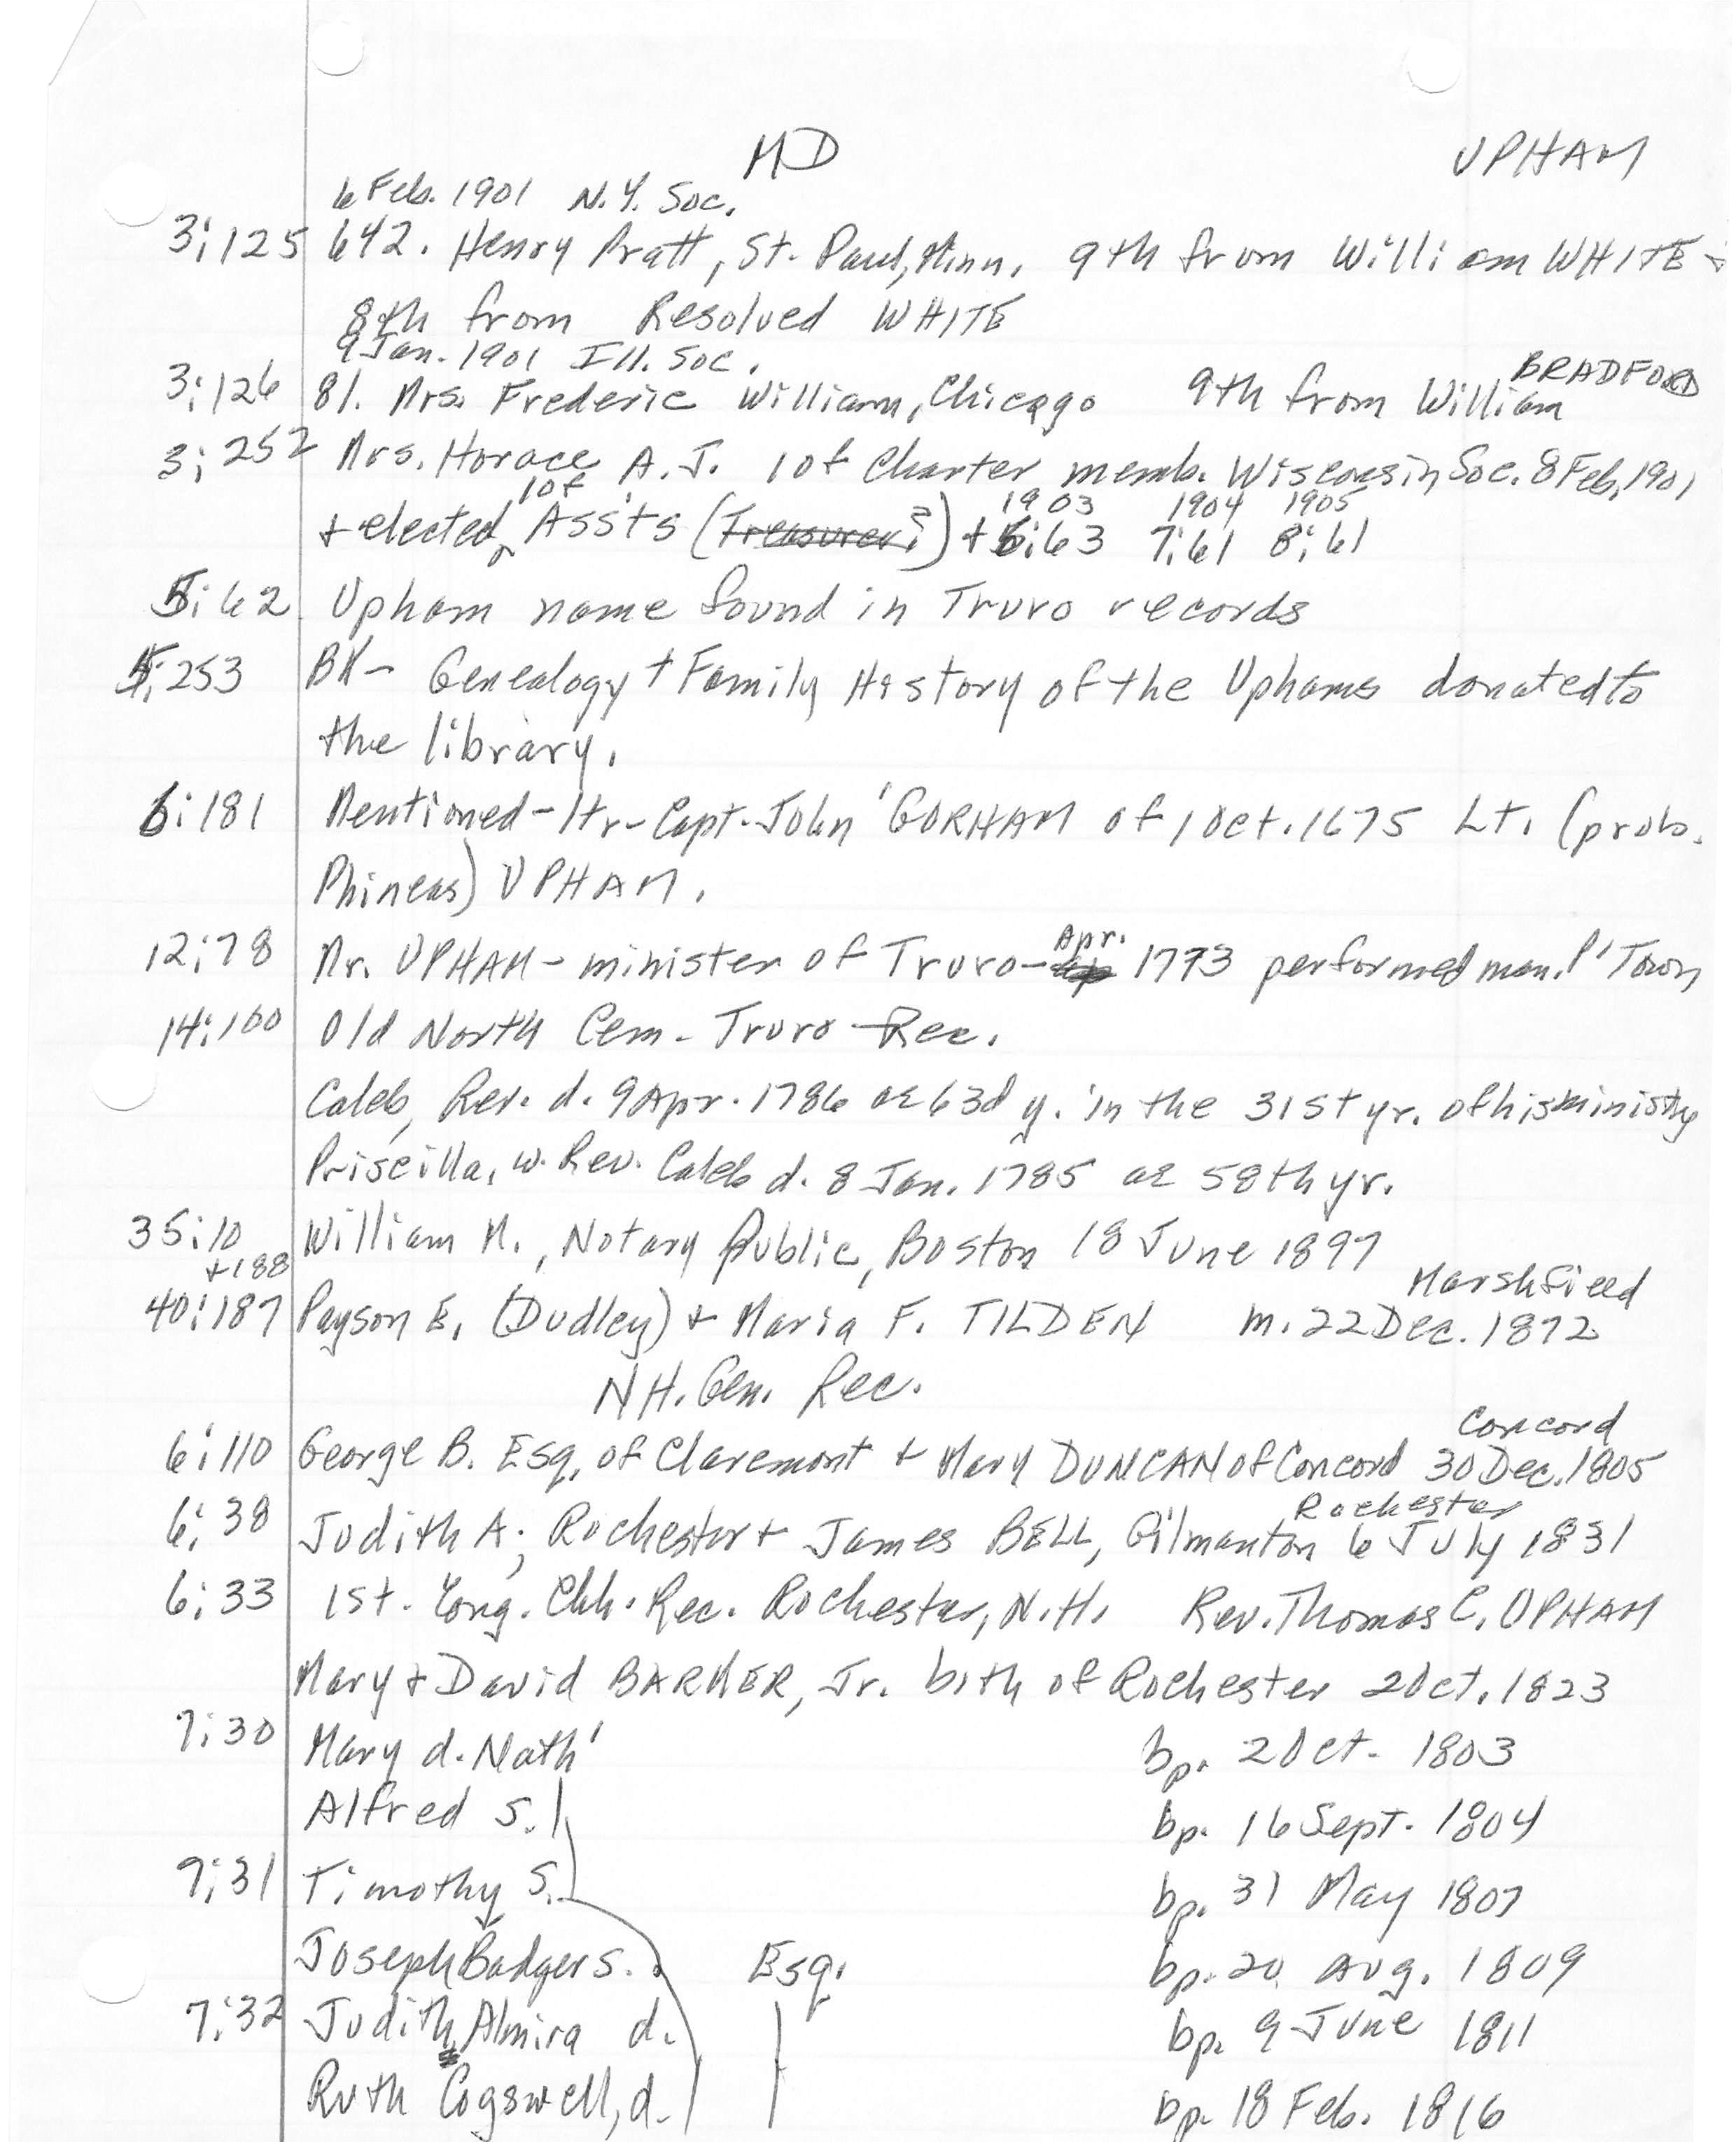 MD UPHAM
6 Feb. 1901 N.Y. Soc.
3:125 642. Henry Pratt, St. Paul, Minn. 9th from William WHITE +
8th from Resolved WHITE
9 Jan. 1901 Ill. Soc.
BRADFORD
3:126 81. Mrs. Frederic William, Chicago 9th from William
3:252 Mrs. Horace A. J. 1 of Charter memb. Wisconsin Soc. 8 Feb. 1901
1 of 1903 1904 1905
+ elected Ass'ts (Treasurer?) + 6:63 7:61 8:61
5:62 Upham name found in Truro records
5:253 BK - Genealogy + Family History of the Uphams donated to
the library.
6:181 Mentioned - ltr - Capt. John GORHAM of 1 Oct. 1675 Lt. (prob.
Phineas) UPHAM.
Apr.
12:78 Mr. UPHAM - minister of Truro - 1773 performed marr. P'Town
14:100 Old North Cem - Truro Rec.
Caleb, Rev. d. 9 Apr. 1786 ae 63d y. in the 31st yr. of his ministry
Priscilla, w. Rev. Caleb d. 8 Jan. 1785 ae 58th yr.
35:10 William M., Notary Public, Boston 18 June 1897
+188 Marshfield
40:187 Payson E. (Dudley) + Maria F. TILDEN m. 22 Dec. 1872
NH. Gen. Rec.
Concord
6:110 George B. Esq. of Claremont + Mary DUNCAN of Concord 30 Dec. 1805
Rochester
6:38 Judith A; Rochester + James BELL, Gilmanton 6 July 1831
6:33 1st. Cong. Chh. Rec. Rochester, N.H. Rev. Thomas C. UPHAM
Mary + David BARKER, Jr. both of Rochester 2 Oct. 1823
7:30 Mary d. Nath' bp. 2 Oct. 1803
Alfred s. bp. 16 Sept. 1804
7:31 Timothy S. bp. 31 May 1807
Joseph Badger s. Esq. bp. 20 Aug. 1809
7:32 Judith Almira d. bp. 9 June 1811
Ruth Cogswell, d. bp. 18 Feb. 1816